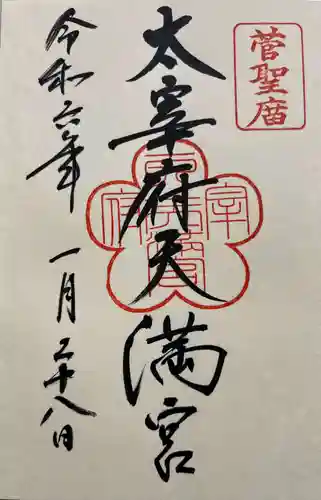 菅聖庿
太宰府天満宮
令和六年 一月二十八日